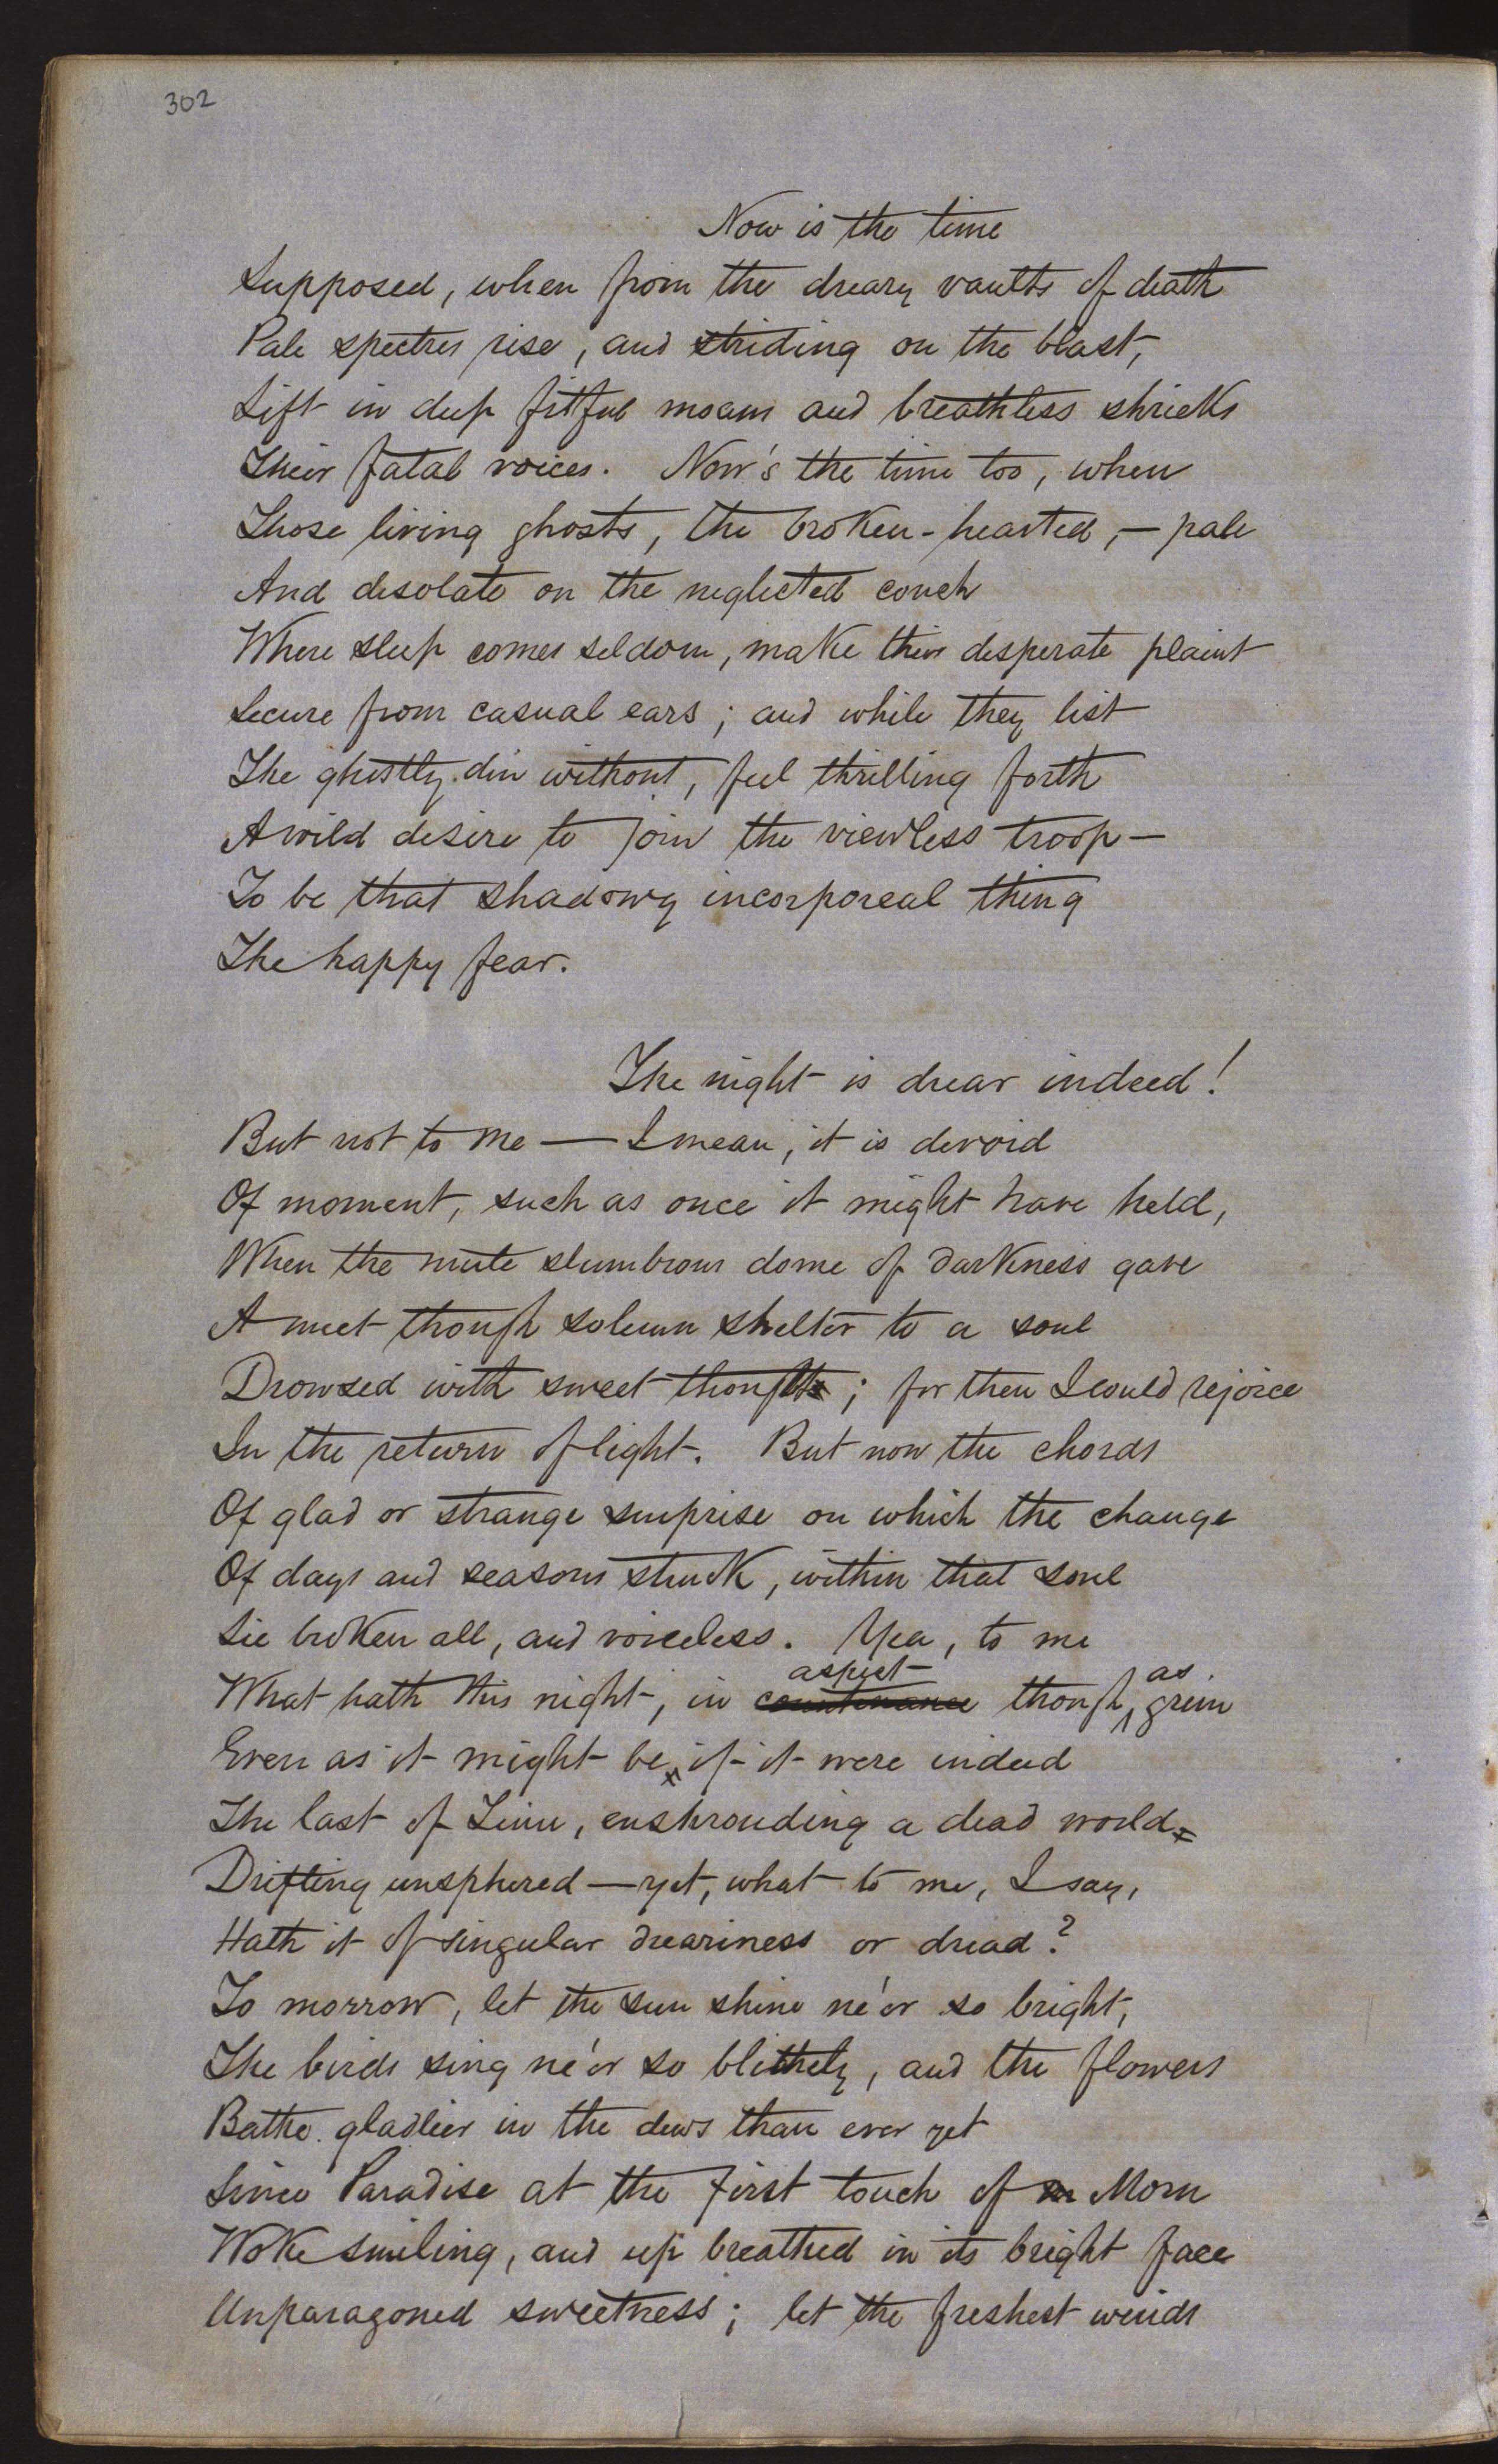 302
Now is the time
Supposed, when from the dreary vaults of death
Pale spectres rise, and striding on the blast,
Lift in deep fitful moans and breathless shrieks
Their fatal voices. Now's the time too, when
Those living ghosts, the broken-hearted, — pale
And desolate on the neglected couch
Where sleep comes seldom, make their desperate plaint
Secure from casual ears; and while they list
The ghostly din without, feel thrilling forth
A wild desire to join the viewless troop —
To be that shadowy incorporeal thing
The happy fear.
The night is drear indeed!
But not to me — I mean, it is devoid
Of moment, such as once it might have held,
When the mute slumbrous dome of darkness gave
A meet though solemn shelter to a soul
Drowsed with sweet thoughts; for then I could rejoice
In the return of light. But now the chords
Of glad or strange surprise on which the change
Of days and seasons struck, within that soul
Lie broken all, and voiceless. Yea, to me
What hath this night, in countenance aspect though as grim
Even as it might be, if it were indeed
The last of Time, enshrouding a dead world
Drifting unsphered — yet, what to me, I say,
Hath it of singular dreariness or dread?
To morrow, let the sun shine ne'er so bright,
The birds sing ne'er so blithely, and the flowers
Bathe gladlier in the dews than ever yet
Since Paradise at the first touch of Morn
Woke smiling, and up breathed in its bright face
Unparagoned sweetness; let the freshest winds